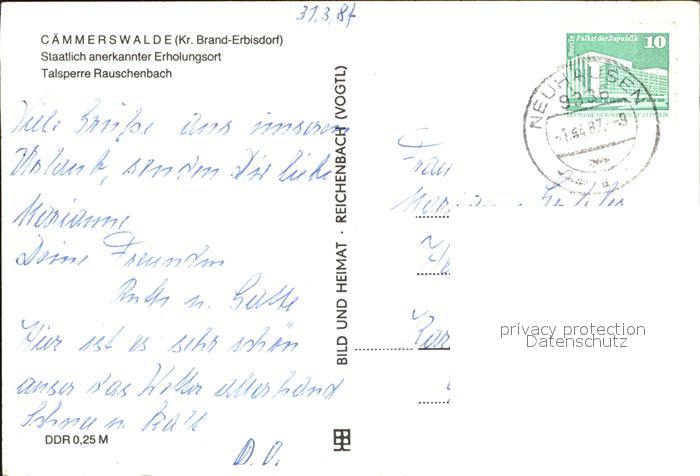 31.3.87
CÄMMERSWALDE (Kr. Brand-Erbisdorf)
Staatlich anerkannter Erholungsort
Talsperre Rauschenbach
Viele Grüße aus unserem
Urlaub, senden Dir liebe
Marianne
Deine Freundin
Ruth u. Gatte
Hier ist es sehr schön
außer das Wetter allerhand
Schnee u. kalt
D. O.
DDR 0,25 M
BILD UND HEIMAT · REICHENBACH (VOGTL)
Berlin Palast der Republik
10
DEUTSCHE DEMOKRATISCHE REPUBLIK
NEUHAUSEN
9336
-1.-4.87.-9
Frau
privacy protection
Datenschutz